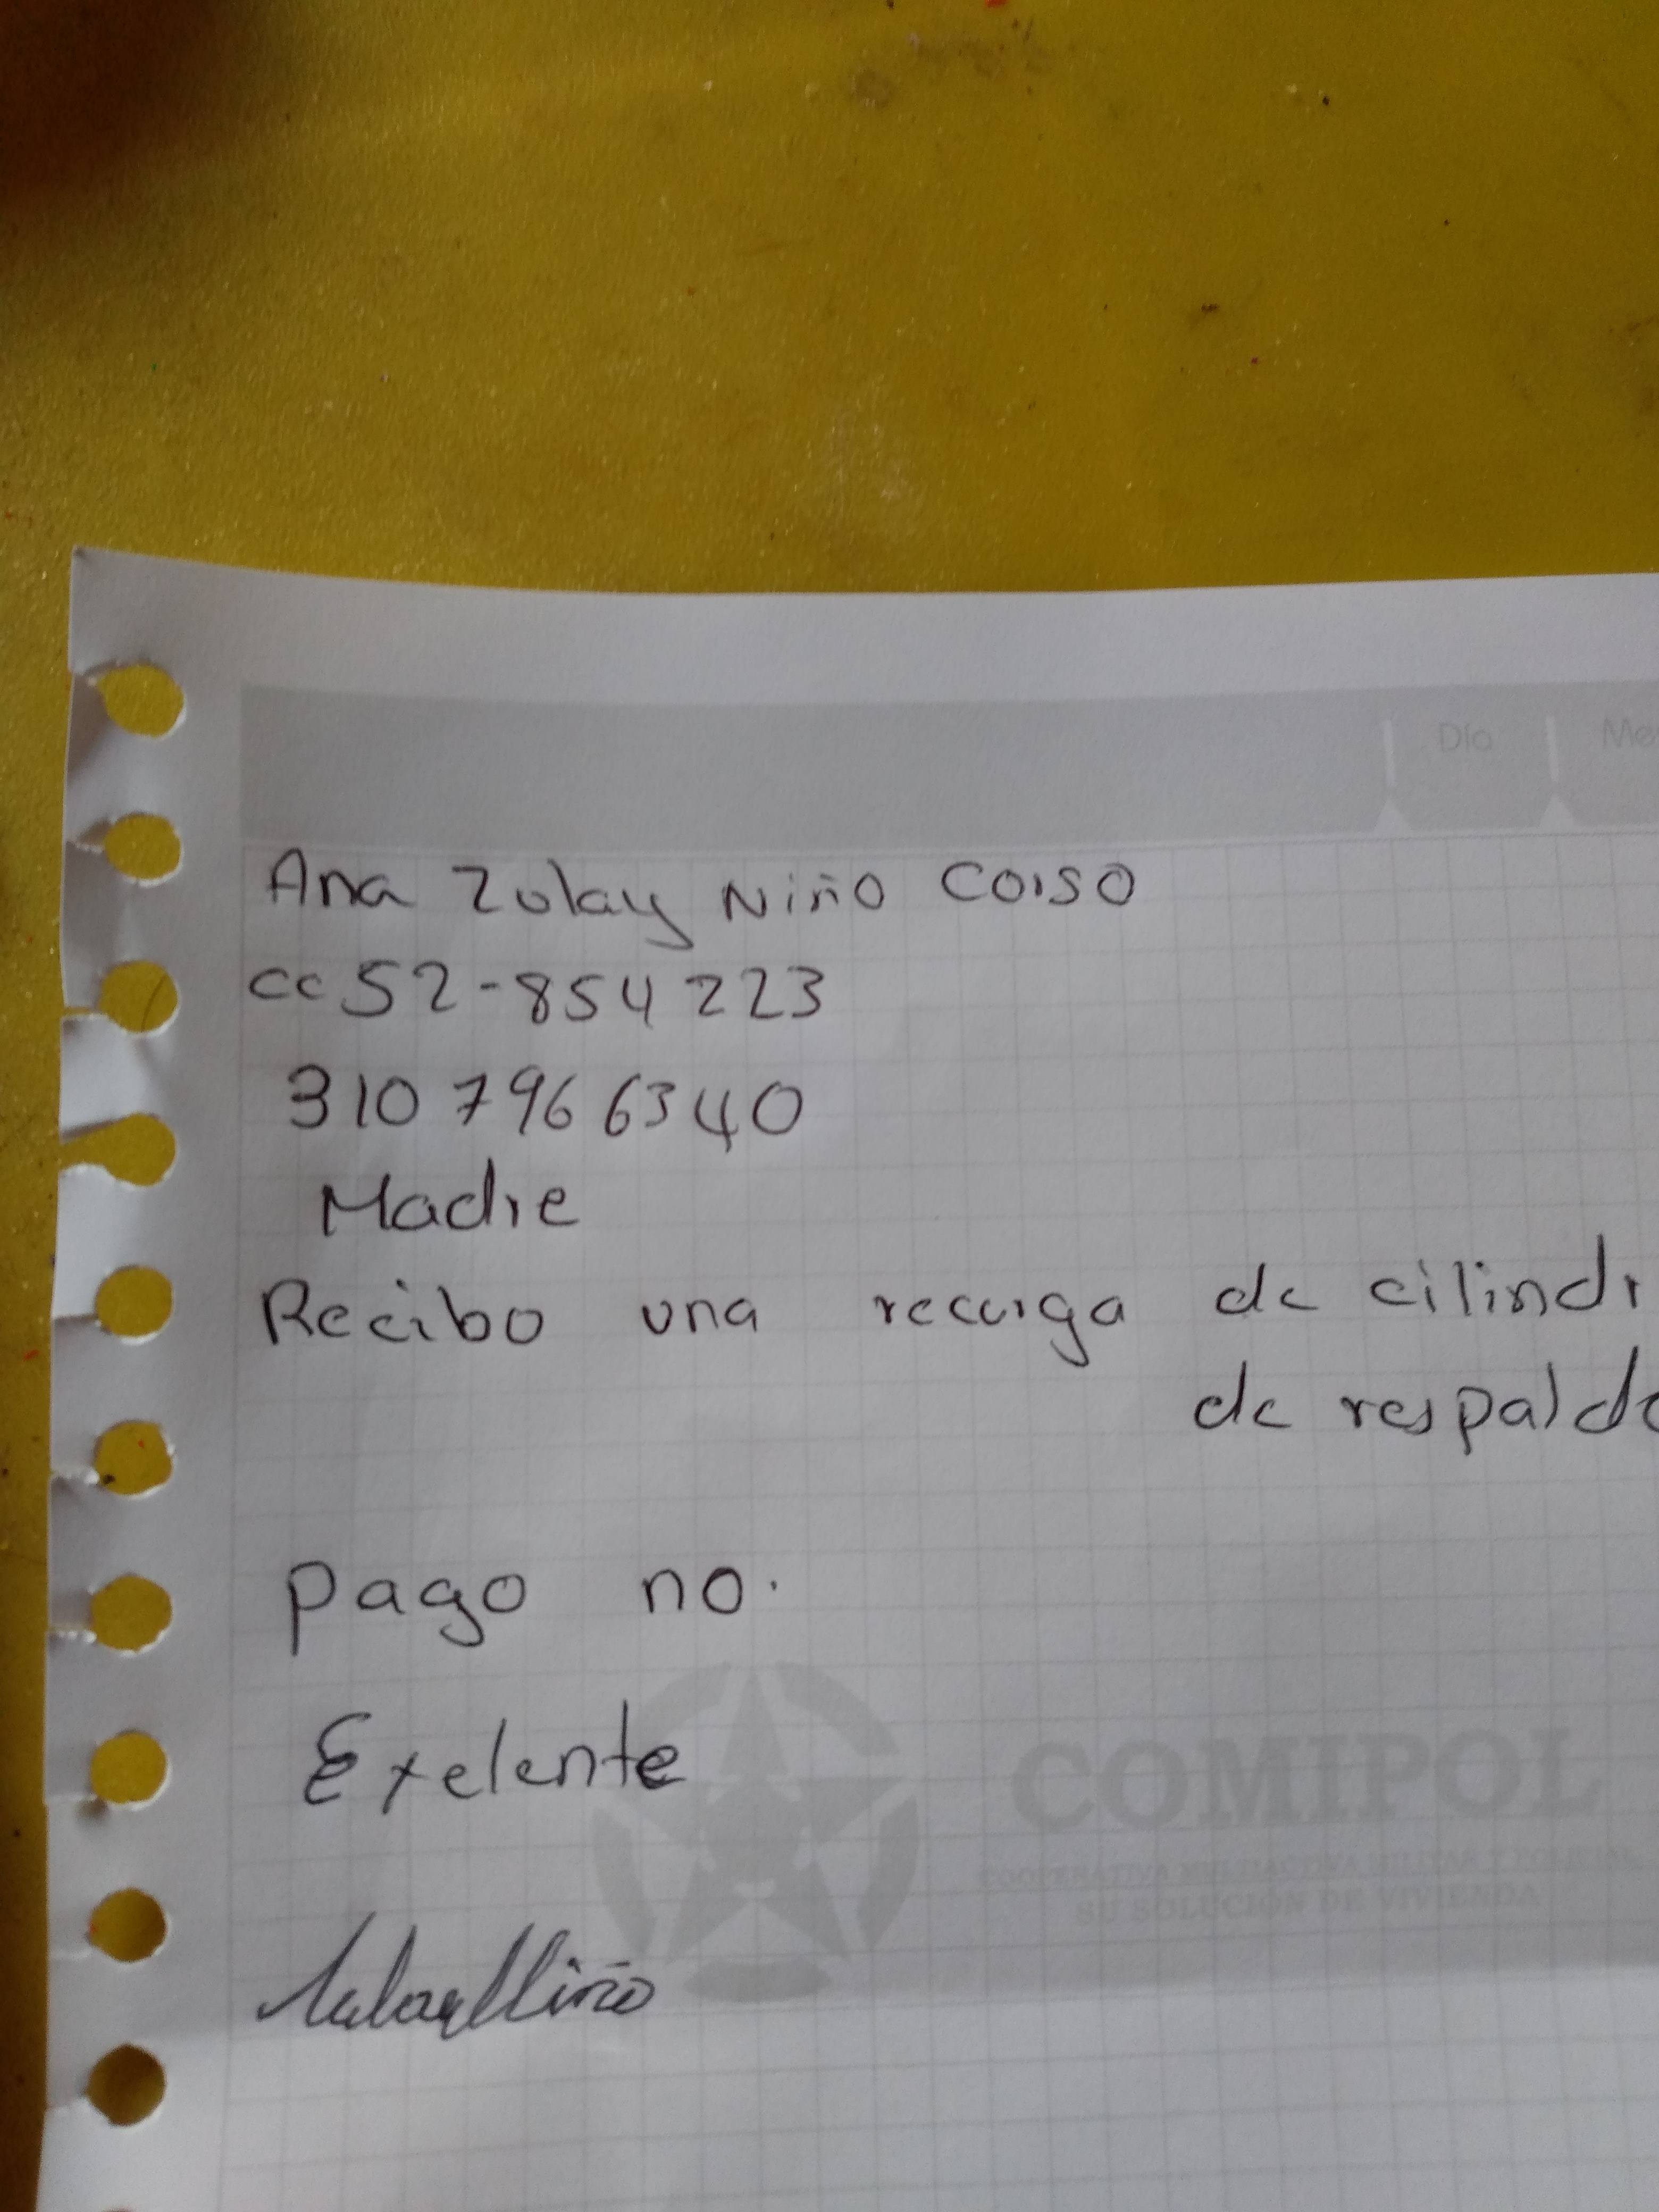 Día Mes
Ana Zulay Niño Corso
cc 52-854223
310 7966340
Madre
Recibo una recarga de cilindr
de respaldo
pago no.
Exelente
COMIPOL
COOPERATIVA MULTIACTIVA MILITAR Y POLICIAL
SU SOLUCIÓN DE VIVIENDA
Zulay Niño